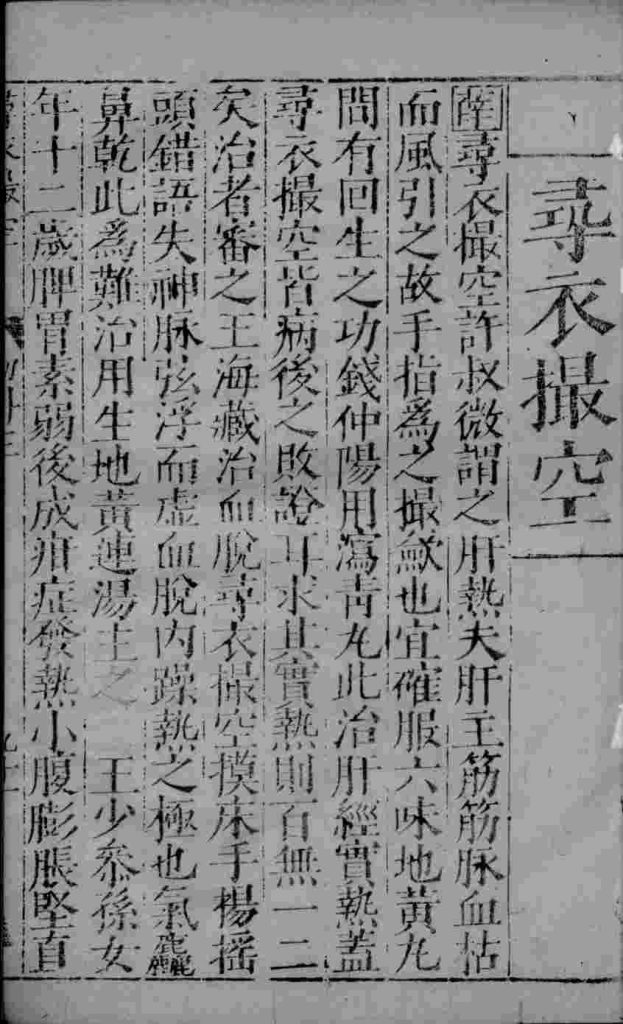 尋衣撮空
薛尋衣撮空許叔微謂之肝熱夫肝主筋筋脉血枯
而風引之故手指爲之撮歛也宜確服六味地黃丸
問有回生之功錢仲陽用瀉靑丸此治肝經實熱蓋
尋衣撮空皆病後之敗證耳求其實熱則百無一二
矣治者審之王海藏治血脫尋衣撮空摸床手揚搖
頭錯語失神脉弦浮而虛血脫內躁熱之極也氣麄
鼻乾此爲難治用生地黃連湯主之　王少叅孫女
年十二歲脾胃素弱後成疳症發熱小腹膨脹堅直